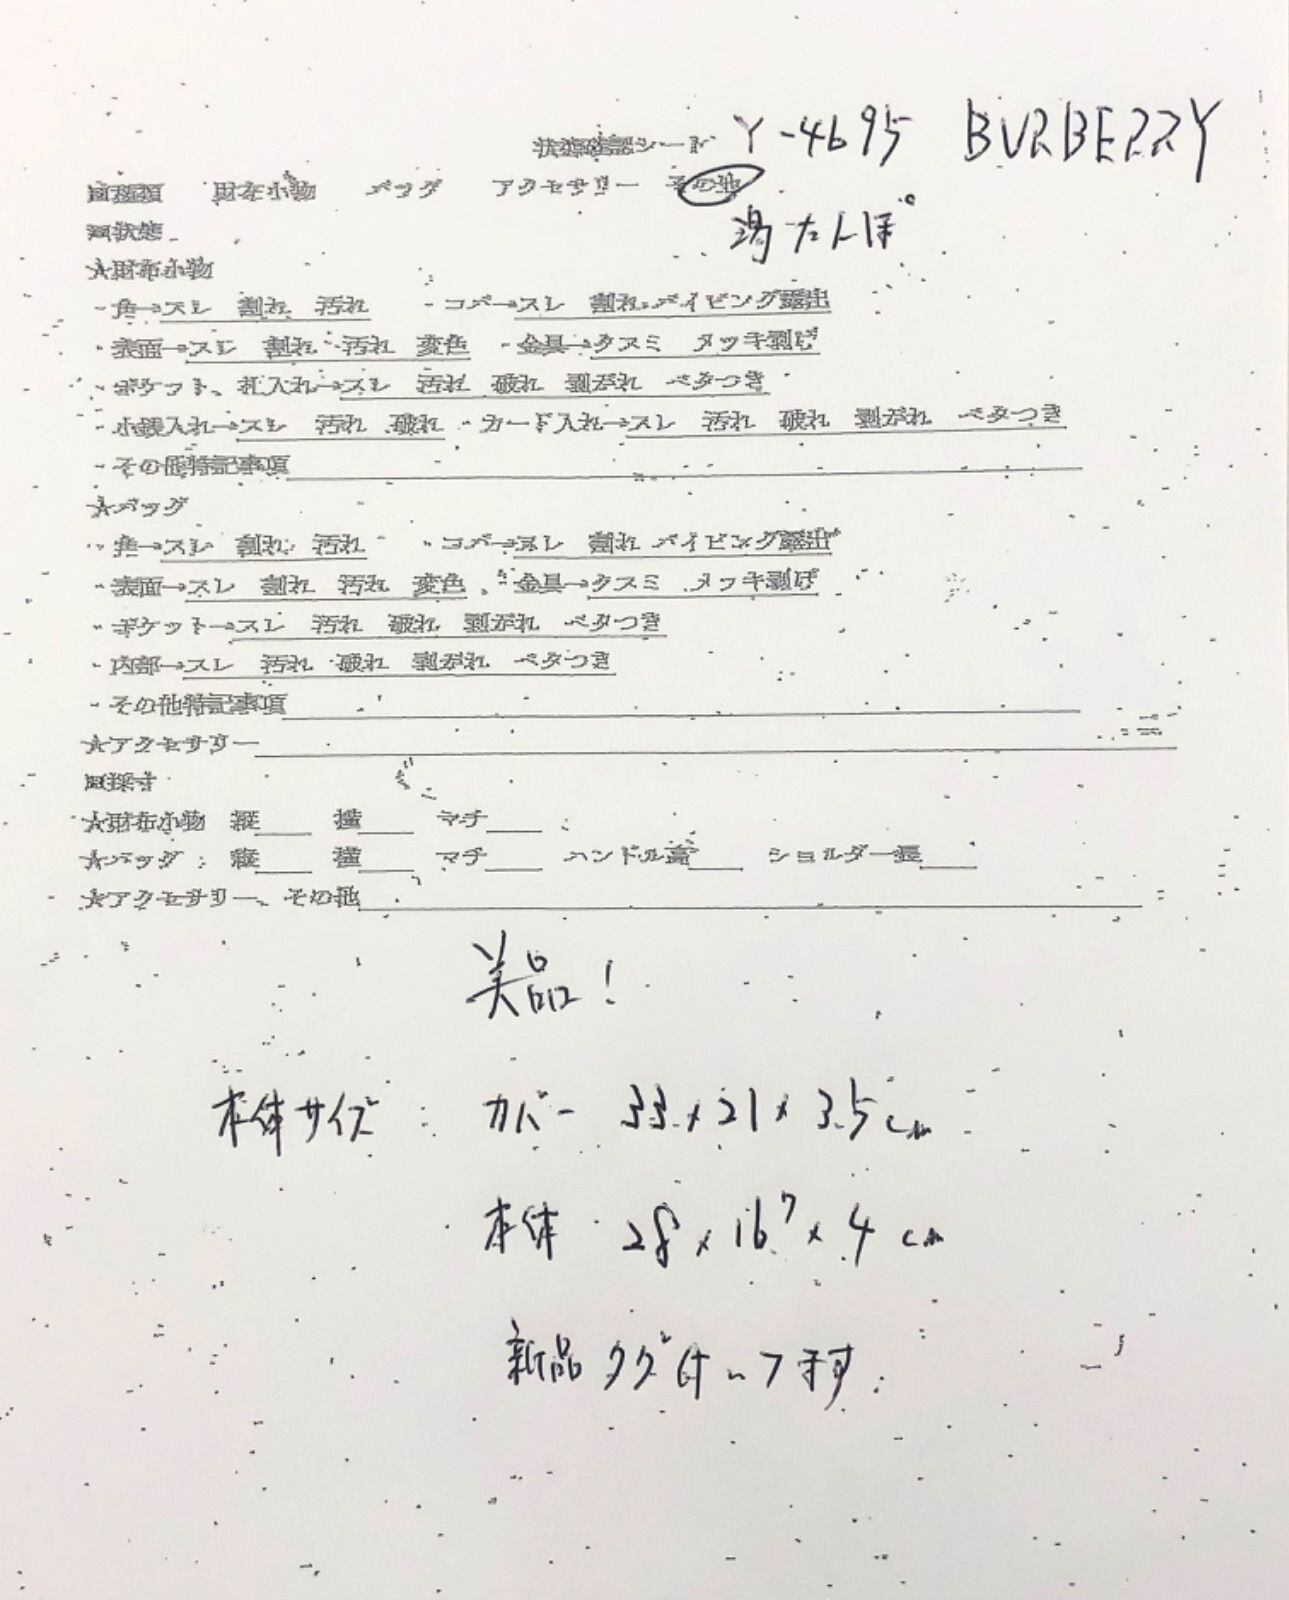 状態確認シート Y-4695 BURBERRY
財布小物 バッグ アクセサリー その他
湯たんぽ
状態
★財布小物
・角→スレ 割れ 汚れ ・コバ→スレ 割れ パイピング露出
・表面→スレ 割れ 汚れ 変色 ・金具→クスミ メッキ剥げ
・ポケット、札入れ→スレ 汚れ 破れ 剥がれ ベタつき
・小銭入れ→スレ 汚れ 破れ ・カード入れ→スレ 汚れ 破れ 剥がれ ベタつき
・その他特記事項
★バッグ
・角→スレ 割れ 汚れ ・コバ→スレ 割れ パイピング露出
・表面→スレ 割れ 汚れ 変色 ・金具→クスミ メッキ剥げ
・ポケット→スレ 汚れ 破れ 剥がれ ベタつき
・内部→スレ 汚れ 破れ 剥がれ ベタつき
・その他特記事項
★アクセサリー
採寸
★財布小物 縦 横 マチ
★バッグ 縦 横 マチ ハンドル高 ショルダー長
★アクセサリー、その他
美品!
本体サイズ: カバー 33×21×3.5cm
本体 28×16×4cm
新品タグ付いてます